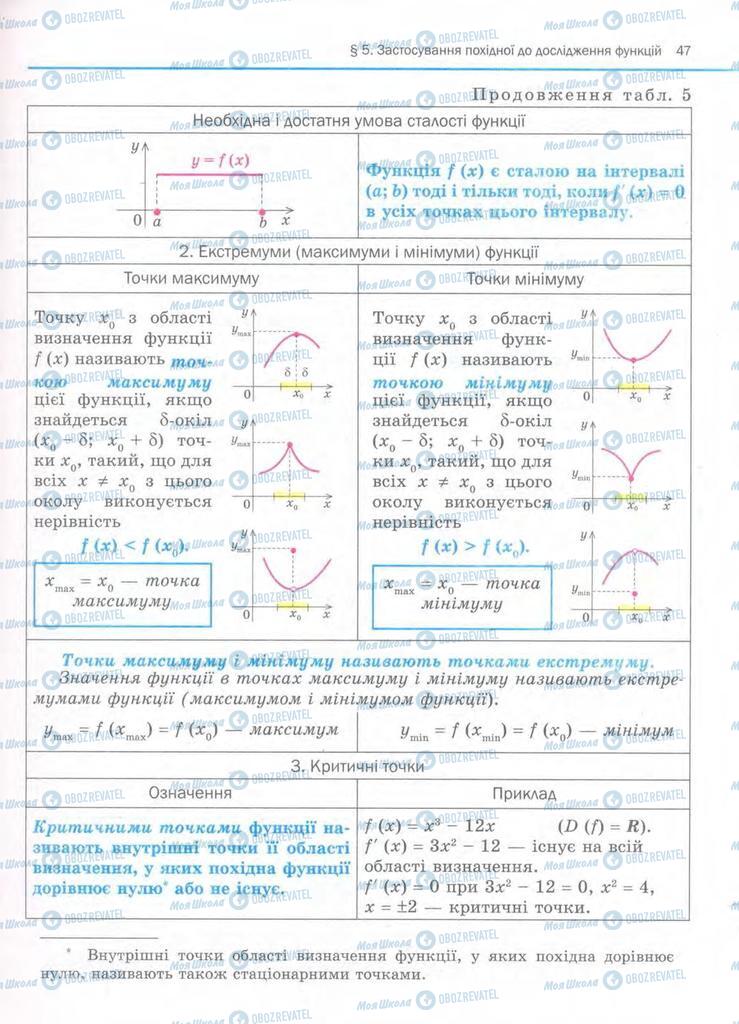 § 5. Застосування похідної до дослідження функцій 47
Продовження табл. 5
Необхідна і достатня умова сталості функції
y
y = f (x)
0 a b x
Функція f (x) є сталою на інтервалі
(a; b) тоді і тільки тоді, коли f′ (x) = 0
в усіх точках цього інтервалу.
2. Екстремуми (максимуми і мінімуми) функції
Точки максимуму
Точку x₀ з області
визначення функції
f (x) називають точ-
кою максимуму
цієї функції, якщо
знайдеться δ-окіл
(x₀ – δ; x₀ + δ) точ-
ки x₀, такий, що для
всіх x ≠ x₀ з цього
околу виконується
нерівність
f (x) < f (x₀).
x max = x₀ — точка
максимуму
y
y max
δ δ
0 x₀ x
y
y max
0 x₀ x
y
y max
0 x₀ x
Точки мінімуму
Точку x₀ з області
визначення функ-
ції f (x) називають
точкою мінімуму
цієї функції, якщо
знайдеться δ-окіл
(x₀ – δ; x₀ + δ) точ-
ки x₀, такий, що для
всіх x ≠ x₀ з цього
околу виконується
нерівність
f (x) > f (x₀).
x max = x₀ — точка
мінімуму
y
y min
0 x₀ x
y
y min
0 x₀ x
y
y min
0 x₀ x
Точки максимуму і мінімуму називають точками екстремуму.
Значення функції в точках максимуму і мінімуму називають екстре-
мумами функції (максимумом і мінімумом функції).
y max = f (x max) = f (x₀) — максимум
y min = f (x min) = f (x₀) — мінімум
3. Критичні точки
Означення
Приклад
Критичними точками функції на-
зивають внутрішні точки її області
визначення, у яких похідна функції
дорівнює нулю* або не існує.
f (x) = x³ – 12x (D (f) = R).
f′ (x) = 3x² – 12 — існує на всій
області визначення.
f′ (x) = 0 при 3x² – 12 = 0, x² = 4,
x = ±2 — критичні точки.
* Внутрішні точки області визначення функції, у яких похідна дорівнює
нулю, називають також стаціонарними точками.
Моя Школа OBOZREVATEL